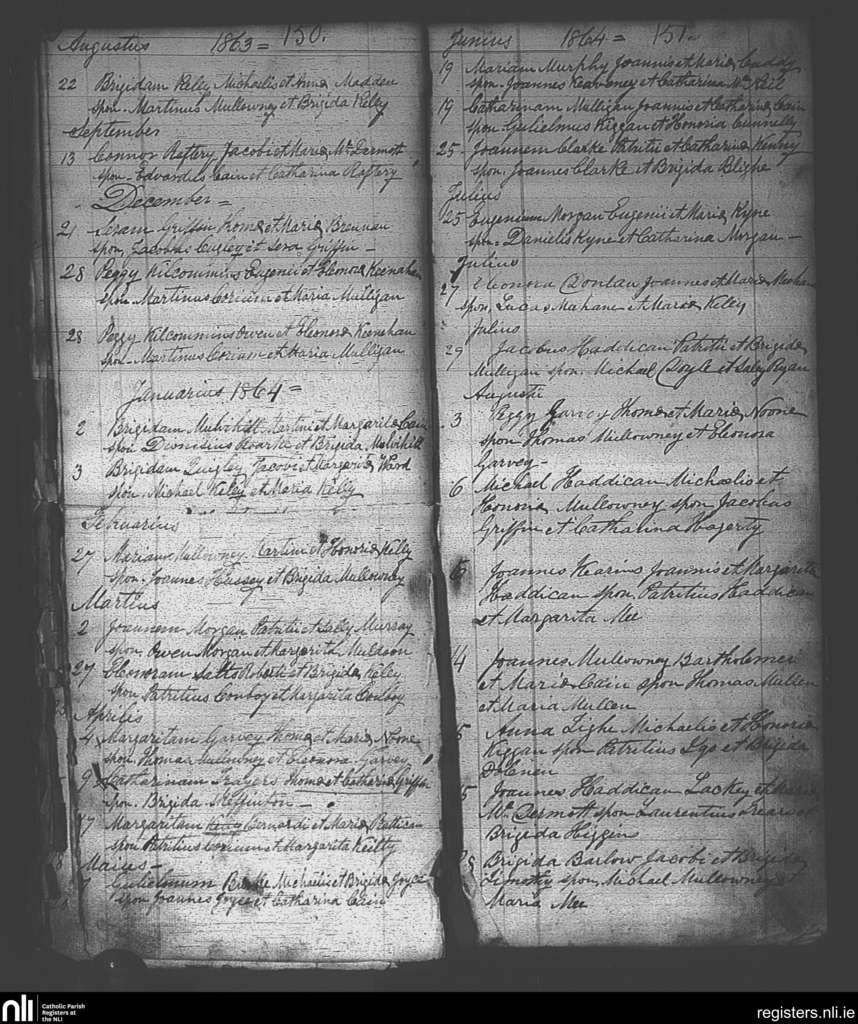 Augustus 1863 = 150.
22 Brigidam Keley Michaelis et Anna Madden
spon. Martinus Mullowney et Brigida Keley
September
13 Connor Raftery Jacobi et Maria McDermott
spon. Edvardus Cain et Catharina Raftery
December =
21 Griffin Thoma et Maria Brennan
spon. Jacobus et Sera Griffin -
28 Peggy Kilcommins Eugenii et Eleonora Keenahan
spon. Martinus et Maria Mulligan
28 Peggy Kilcommins Owen et Eleonora Keenehan
spon. Martinus et Maria Mulligan
Januarius 1864 =
2 Brigidam Mulvihill Martini et Margarita Cain
spon Dionisius et Brigida Mulvihill
3 Brigidam Quigley Jacobi et Margarita Ward
spon. Michael Keley et Maria Kelly
Februarius
27 Mariam Mullowney Martini et Honoria Kelly
spon. Joannes Hussey et Brigida Mullowney
Martius
2 Joannem Morgan Patritii et Sally Murray
spon. Owen Morgan et Margarita Muldoon
27 Eleonoram Salts Roberti et Brigida Keley
spon Patritius Conboy et Margarita Conboy
Aprilis
4 Margaritam Garvey Thoma et Maria Noone
spon Thomas Mullowney et Eleonora Garvey
9 Catharinam Thoma et Catharina Griffin
spon. Brigida Skeffinton -
17 Margaritam Bernardi et Maria
spon Patritius et Margarita Keilty
Maius -
Gulielmum Burke Michaelis et Brigida Joyce
spon Joannes Joyce et Catharina Cain
Junius 1864 = 151.
19 Mariam Murphy Joannis et Maria Cuddy
spon. Joannes Keaveney et Catharina McKeil
19 Catharinam Mulligan Joannis et Catharina Cain
spon Gulielmus Kiggan et Honoria Cunnelly
25 Joannem Clarke Patritii et Catharina Kenny
spon. Joannes Clarke et Brigida Blighe
Julius
25 Eugenium Morgan Eugenii et Maria Kyne
spon. Danielis Kyne et Catharina Morgan -
Julius
27 Eleonora Donlan Joannes et Maria
spon, Lucas Mahane et Maria Keley
Julius
29 Jacobus Haddican Patritii et Brigida
Mulligan spon. Michael Doyle et Saley Ryan
Augusti
3 Peggy Garvey Thoma et Maria Noone
spon Thomas Mullowney et Eleonora
Garvey -
6 Michael Haddican Michaelis et
Honoria Mullowney spon Jacobus
Griffin et Catharina Hagerty
Joannes Kearins Joannis et Margarita
Haddican spon Patritius Haddican
et Margarita Mee
14 Joannes Mullowney Bartholomei
et Maria Cain spon Thomas Mullen
et Maria Mullen
Anna Tighe Michaelis et Honoria
Kiggan spon Patritius et Brigida
Joannes Haddican Lackey et Maria
McDermott spon Laurentius et
Brigida Higgins
Brigida Barlow Jacobi et Brigida
Timothy spon, Michael Mullowney et
Maria Mee
nli Catholic Parish
Registers at
the NLI
registers.nli.ie